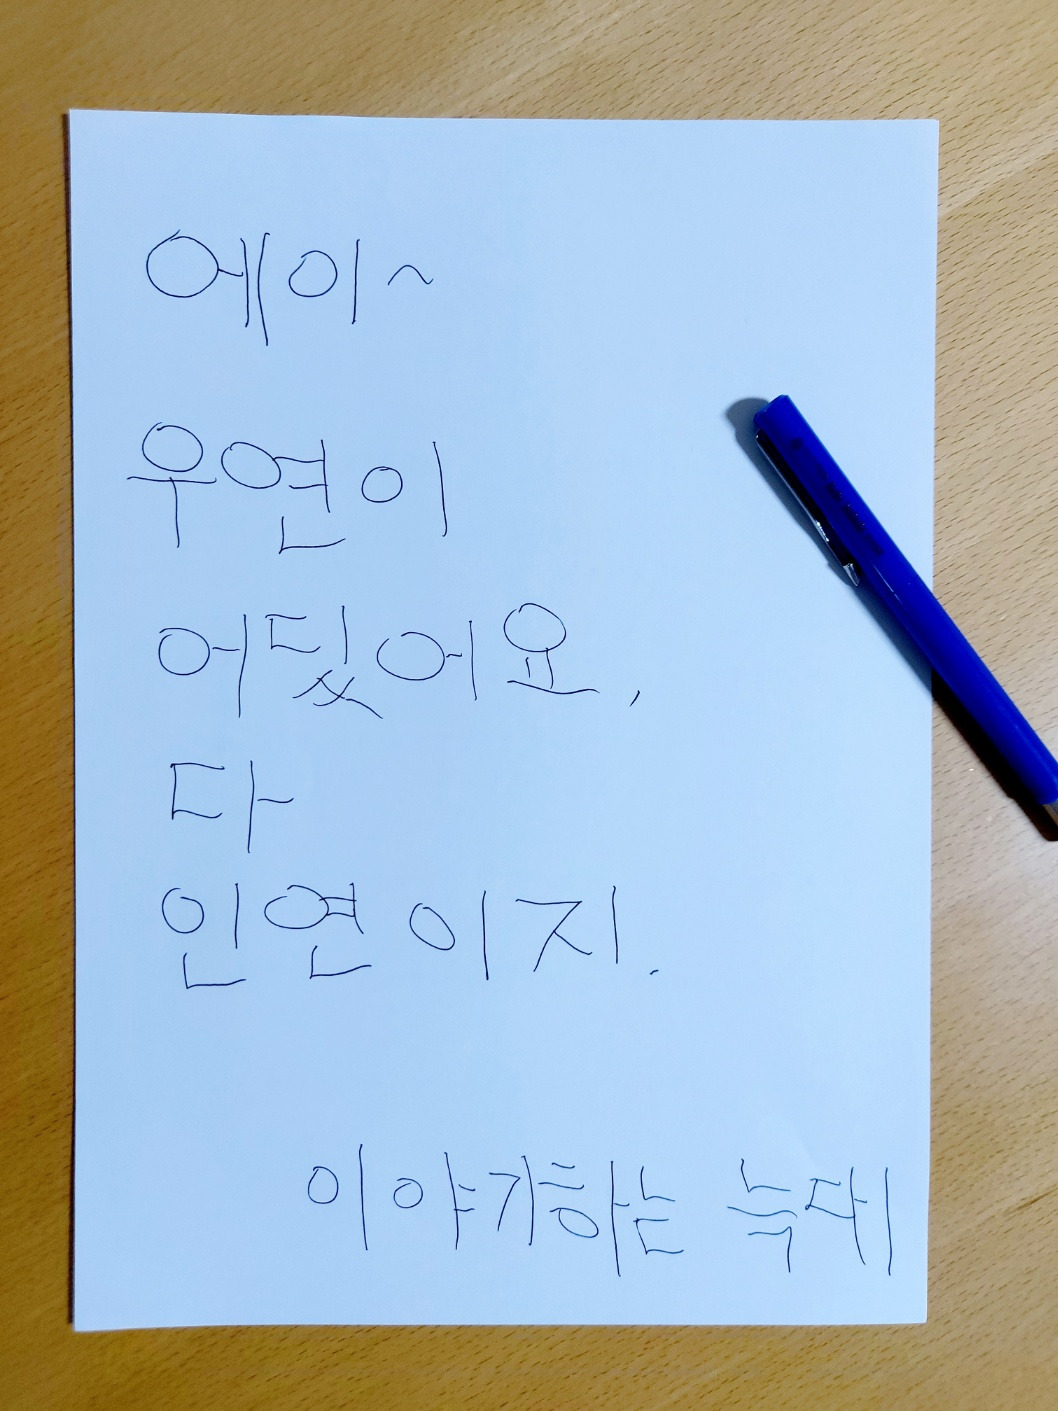 에이~
우연이
어딨어요,
다
인연이지.
이야기하는 늑대